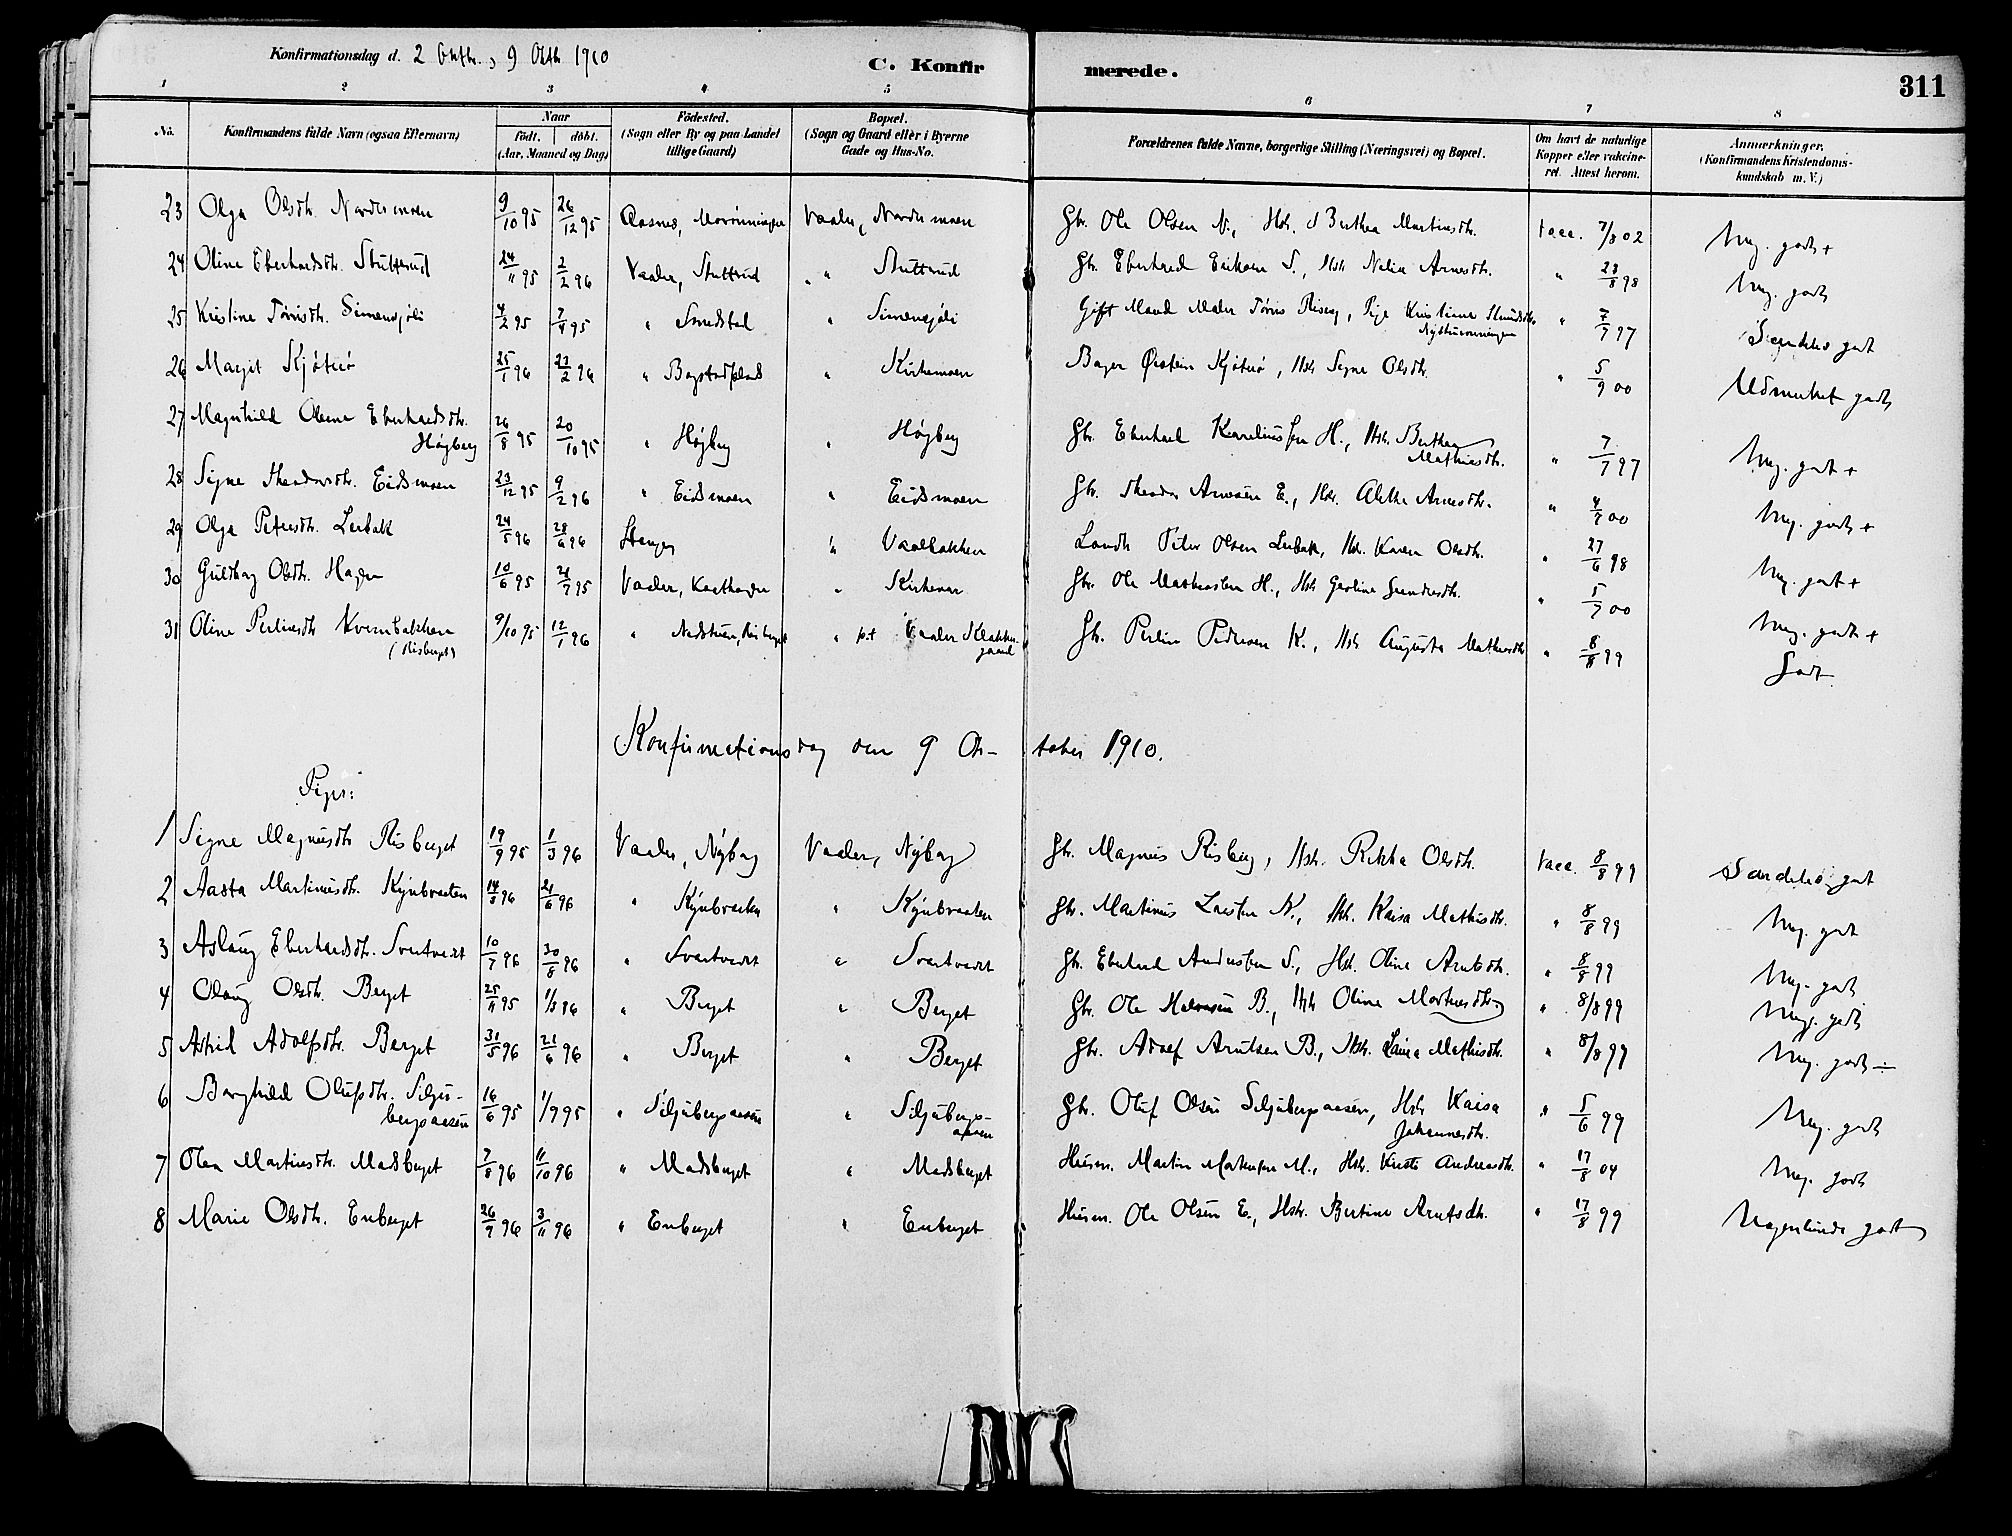 Konfirmationsdag d. 2 Oktbr., 9 Oktb 1910
C. Konfir merede. 311
1 2 3 4 5 6 7 8
No. Konfirmandens fulde Navn (ogsaa Efternavn) Naar födt. döbt. (Aar, Maaned og Dag) Födested. (Sogn eller By og paa Landet tillige Gaard) Bopæl. (Sogn og Gaard eller i Byerne Gade og Hus-No. Forældrenes fulde Navne, borgerlige Stilling (Næringsvei) og Bopæl. Om havt de naturlige Kopper eller vaccineret. Attest herom. Anmærkninger. (Konfirmandens Kristendomskundskab m. V.)
23 Olga Olsdtr. Nordermoen 9/10 95 26/12 95 Aasnes, Vaaler, Nordermoen Gbr. Ole Olsen N., Hstr. Berthea Martinusdtr. Vacc. 7/8 02 Meg. godt +
24 Oline Eberhardsdtr. Stuttrud 24/11 95 2/2 96 Vaaler, Stuttrud " Stuttrud Gbr. Eberhard Eriksen S., Hstr Nelia Arnesdtr. " 23/8 98 Meg. godt
25 Kristine Tørrisdtr. Simensjøli 4/2 95 7/4 95 " Smedstad " Simensjøli Gift Mand Maler Tørris Risberg, Pige Kristiane " 7/7 97 Særdeles godt
26 Margit Kjøterø 25/1 96 23/2 96 " Bogstadplads " Kirkemoen Bager Østein Kjøterø, Hstr Signe Olsdtr. " 5/9 00 Udmerket godt
27 Magnhild Oline Eberhardsdtr.
Højberg 26/8 95 20/10 95 " Højberg " Højberg Gbr. Eberhard Kareliussen H., Hstr. Berthea
Mathiasdtr. " 7/7 97 Meg. godt +
28 Signe Theodorsdtr. Eidsmoen 23/12 95 9/2 96 " Eidsmoen " Eidsmoen Gbr. Theodor Arnesen E., Hstr. Alethe Arnesdtr. " 4/7 00 Meg. godt +
29 Olga Petersdtr. Lerbak 24/5 96 28/6 96 Stange " Vaalbakken Landh Peter Olsen Lerbak, Hstr. Karen Olsdtr. " 27/6 98 Meg. godt +
30 Guldborg Olsdtr. Hagen 10/6 95 21/7 95 Vaaler, " Kirkenær Gbr. Ole Mathiassen H., Hstr Karoline Gundersdtr. " 5/7 00 Meg. godt +
31 Oline Perlinesdtr Kvernbakken
(Risberget) 9/10 95 12/1 96 " Nedstuen, Risberget " p.t Vaaler Klokker
gaard Gbr. Perlin Pedersen K., Hstr Augusta Mathiasdtr " 8/8 99 Godt
Konfirmationsdag den 9 Ok- tober 1910.
Piger:
1 Signe Magnusdtr Risberget 19/9 95 1/3 96 Vaaler, Nyberg Vaaler, Nyberg Gbr. Magnus Risberg, Hstr. Rikka Olsdtr. Vacc. 8/8 99 Særdeles godt
2 Aasta Martinusdtr. Kynbraaten 14/3 96 21/6 96 " Kynbraaten " Kynbraaten Gbr. Martinus Larsen K., Hstr. Kaisa Mathisdtr. " 8/8 99 Meg. godt
3 Aslaug Eberhardsdtr. Svartvedt 10/7 96 30/8 96 " Svartvedt " Svartvedt Gbr. Eberhard Andersen S., Hstr. Oline Arntsdtr. " 8/8 99 Meg. godt
4 Olaug Olsdtr. Berget 25/11 95 1/3 96 " Berget " Berget Gbr. Ole Halvorsen B., Hstr Oline Mortensdtr. " 8/8 99 Meg. godt
5 Astrid Adolfsdtr. Berget 31/5 96 21/6 96 " Berget " Berget Gbr. Adolf Arntsen B., Hstr. Laura Mathisdtr. " 8/8 99 Meg. godt ÷
6 Borghild Olufsdtr. Silju-
bergsaasen 16/6 95 1/9 95 " Siljubergsaasen " Siljubergs-
aasen Gbr. Oluf Olsen Siljubergsaasen, Hstr Kaisa
Johannesdtr. " 5/6 99 Meg. godt
7 Olea Martinsdtr. Madsberget 7/8 96 11/10 96 " Madsberget " Madsberget Husm. Martin Mortensen M., Hstr. Kirsti Andreasdtr. " 17/8 04 Meg. godt
8 Marie Olsdtr. Enberget 26/9 96 3/11 96 " Enberget " Enberget Husm. Ole Olsen E., Hstr. Bertine Arntsdtr. " 17/8 99 Nogenlunde godt